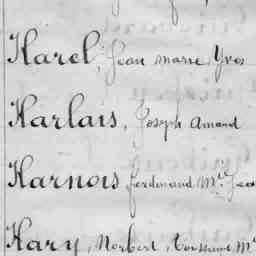 Harel, Jean Marie Yves
Harlais, Joseph Amand
Harnois Ferdinand Mie Jean
Hary, Norbert, Toussaint Mie